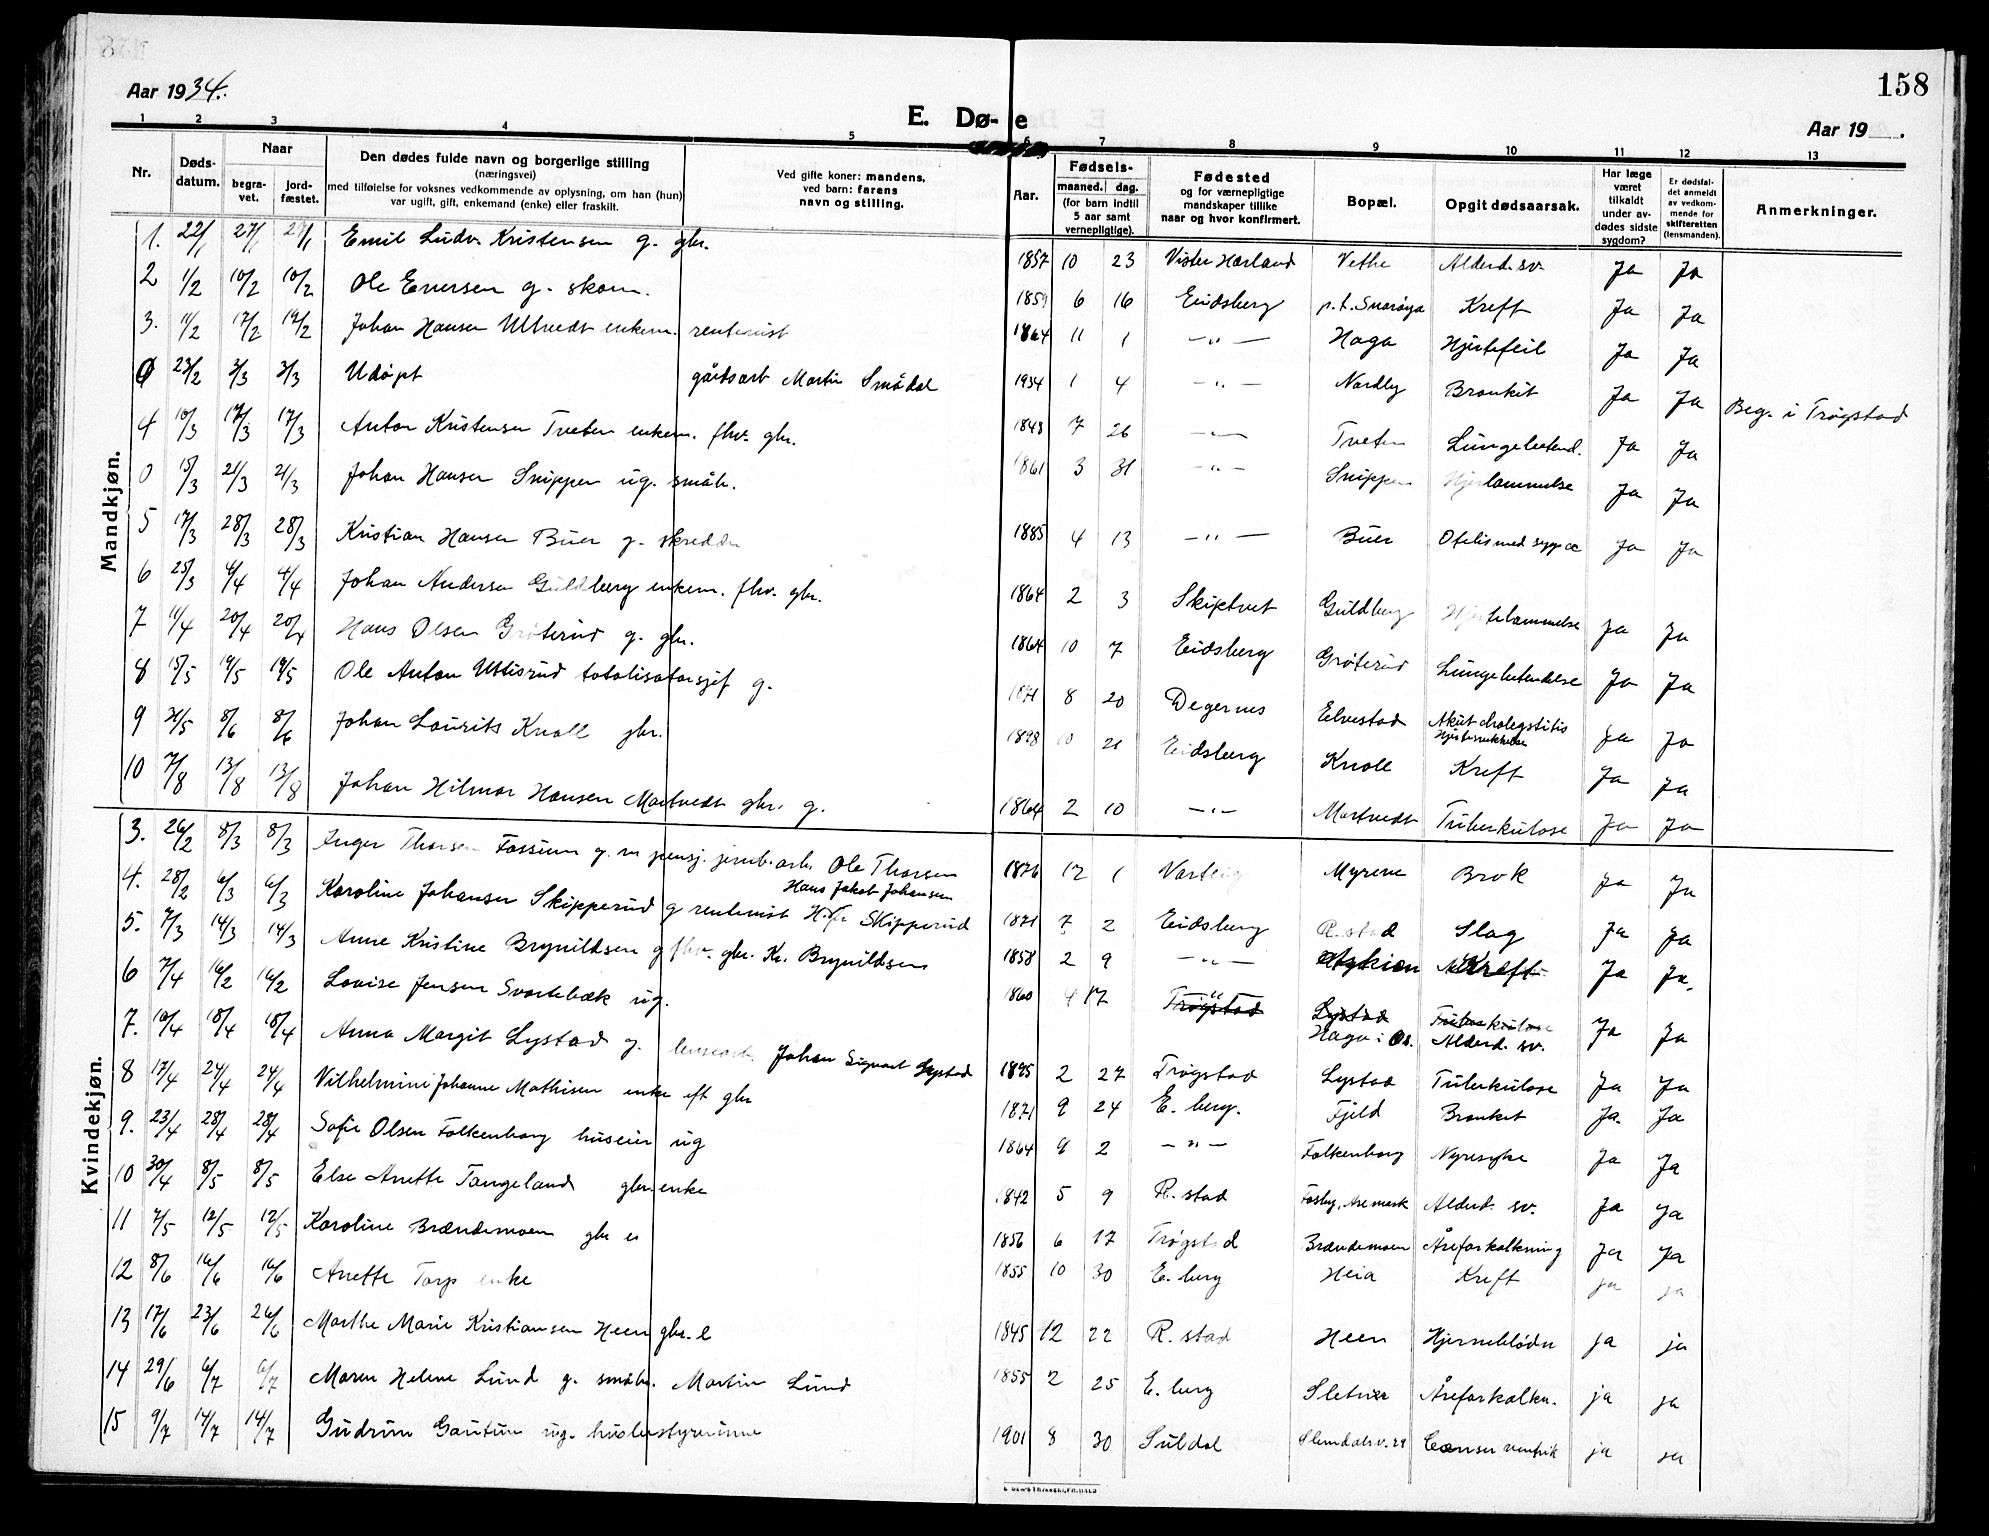 158
Aar 1934.
E. Dø- e
Aar 19 .
1 2 3 4 5 6 7 8 9 10 11 12 13
Nr. Døds-datum. Naar begra-vet. jord-fæstet. Den dødes fulde navn og borgerlige stilling (næringsvei) med tilføielse for voksnes vedkommende av oplysning, om han (hun) var ugift, gift, enkemand (enke) eller fraskilt. Ved gifte koner: mandens, ved barn: farens navn og stilling. Aar. Fødsels- maaned. dag. (for barn indtil 5 aar samt vernepligtige). Fødested og for værnepligtige mandskaper tillike naar og hvor konfirmert. Bopæl. Opgit dødsaarsak. Har læge været tilkaldt under av-dødes sidste sygdom? Er dødsfal-det anmeldt av vedkom-mende for skifteretten (lensmanden). Anmerkninger.
Mandkjøn.
1. 22/1 27/1 27/1 Emil Ludv. Kristensen g. gbr. 1857 10 23 Vister Hærland Vethe Alderd. sv. Ja Ja
2 1/2 10/2 10/2 Ole Evensen g. skom. 1859 6 16 Eidsberg p.t. Snarøya Kreft Ja Ja
3. 11/2 17/2 17/2 Johan Hansen Ultvedt enkem. rentenist 1864 11 1 —"— Haga Hjertefeil Ja Ja
0 23/2 3/3 3/3 Udøpt gårdsarb Martin Smådal 1934 1 4 —"— Nordby Bronkit Ja Ja Beg. i Trøgstad
4 10/3 17/3 17/3 Anton Kristensen Tveten enkem. fhv. gbr. 1848 7 26 —"— Tveten Lungebetend. Ja Ja
0 15/3 21/3 21/3 Johan Hansen Snippen ug. småbr. 1861 3 31 —"— Snippen Hjerlammelse Ja Ja
5 17/3 28/3 28/3 Kristian Hansen Buer g. skredder 1885 4 13 —"— Buer Ja Ja
6 25/3 4/4 4/4 Johan Andersen Guldberg enkem. fhv. gbr. 1864 2 3 Skiptvet Guldberg Hjertelammelse Ja Ja
7 11/4 20/4 20/4 Hans Olsen Grøterud g. gbr. 1864 10 7 Eidsberg Grøterud Lungebetendelse Ja Ja
8 15/5 19/5 19/5 Ole Anton Uttisrud totalisatorsjef g. 1871 8 20 Degernes Elvestad Akut cholegstitis Ja Ja
9 31/5 8/6 8/6 Johan Laurits Knoll gbr. 1898 10 21 Eidsberg Knoll Kreft Ja Ja
10 7/8 13/8 13/8 Johan Hilmar Hansen Martvedt gbr. g. 1864 2 10 —"— Martvedt Tuberkulose Ja Ja
Kvindekjøn.
3. 26/2 8/3 8/3 Inger Thorsen Fossum g. m pensj. jernb. arb. Ole Thorsen 1876 12 1 Varteig Myrene Brok Ja Ja
Hans Jakob Johansen
4. 28/2 6/3 6/3 Karoline Johansen Skipperud g rentenist Skipperud 1871 7 2 Eidsberg R.stad Slag Ja Ja
5. 7/3 14/3 14/3 Anne Kristine Brynildsen g fhv. gbr. Kr. Brynildsen 1858 2 9 —"— Askim Kreft Ja Ja.
6 7/4 16/2 16/2 Lovise Jensen Svartebæk ug. 1860 4 17 Trøgstad Lystad Tuberkulose Ja Ja
Haga i Os. Alderd. sv.
7. 10/4 18/4 18/4 Anna Margit Lystad g. Johan Sigvart Lystad 1895 2 27 Trøgstad Lystad Tuberkulose Ja Ja
8 17/4 24/4 24/4 Vilhelmine Johanne Mathisen enke eft gbr 1871 9 24 E. berg. Fjeld Bronkit Ja. Ja
9. 23/4 28/4 28/4 Sofie Olsen Folkenborg huseier ug 1864 9 2 —"— Folkenborg Nyresyke Ja Ja
10 30/4 8/5 8/5 Else Anette Tangeland gbr. enke 1842 5 9 R. stad Fosby, Aremark Alderd. sv. Ja Ja
11 7/5 12/5 12/5 Karoline Brændemoen gbr e 1856 6 17 Trøgstad Brændemoen Åreforkalkning Ja Ja
12 8/6 16/6 16/6 Anette Torp enke 1855 10 30 E. berg Heia Kreft ja ja
13 17/6 23/6 26/6 Marthe Marie Kristiansen Heen gbr. e 1845 12 22 R. stad Heen Hjerneblødn ja ja
14 29/6 6/7 6/7 Maren Helene Lund g. småbr. Martin Lund 1855 2 25 E. berg Sletner Åreforkalkn. ja ja
15 9/7 14/7 14/7 Gudrun Gautun ug. husbestyrerinne 1901 8 30 Suldal Slemdalsv. 29 Canser ventrik ja ja